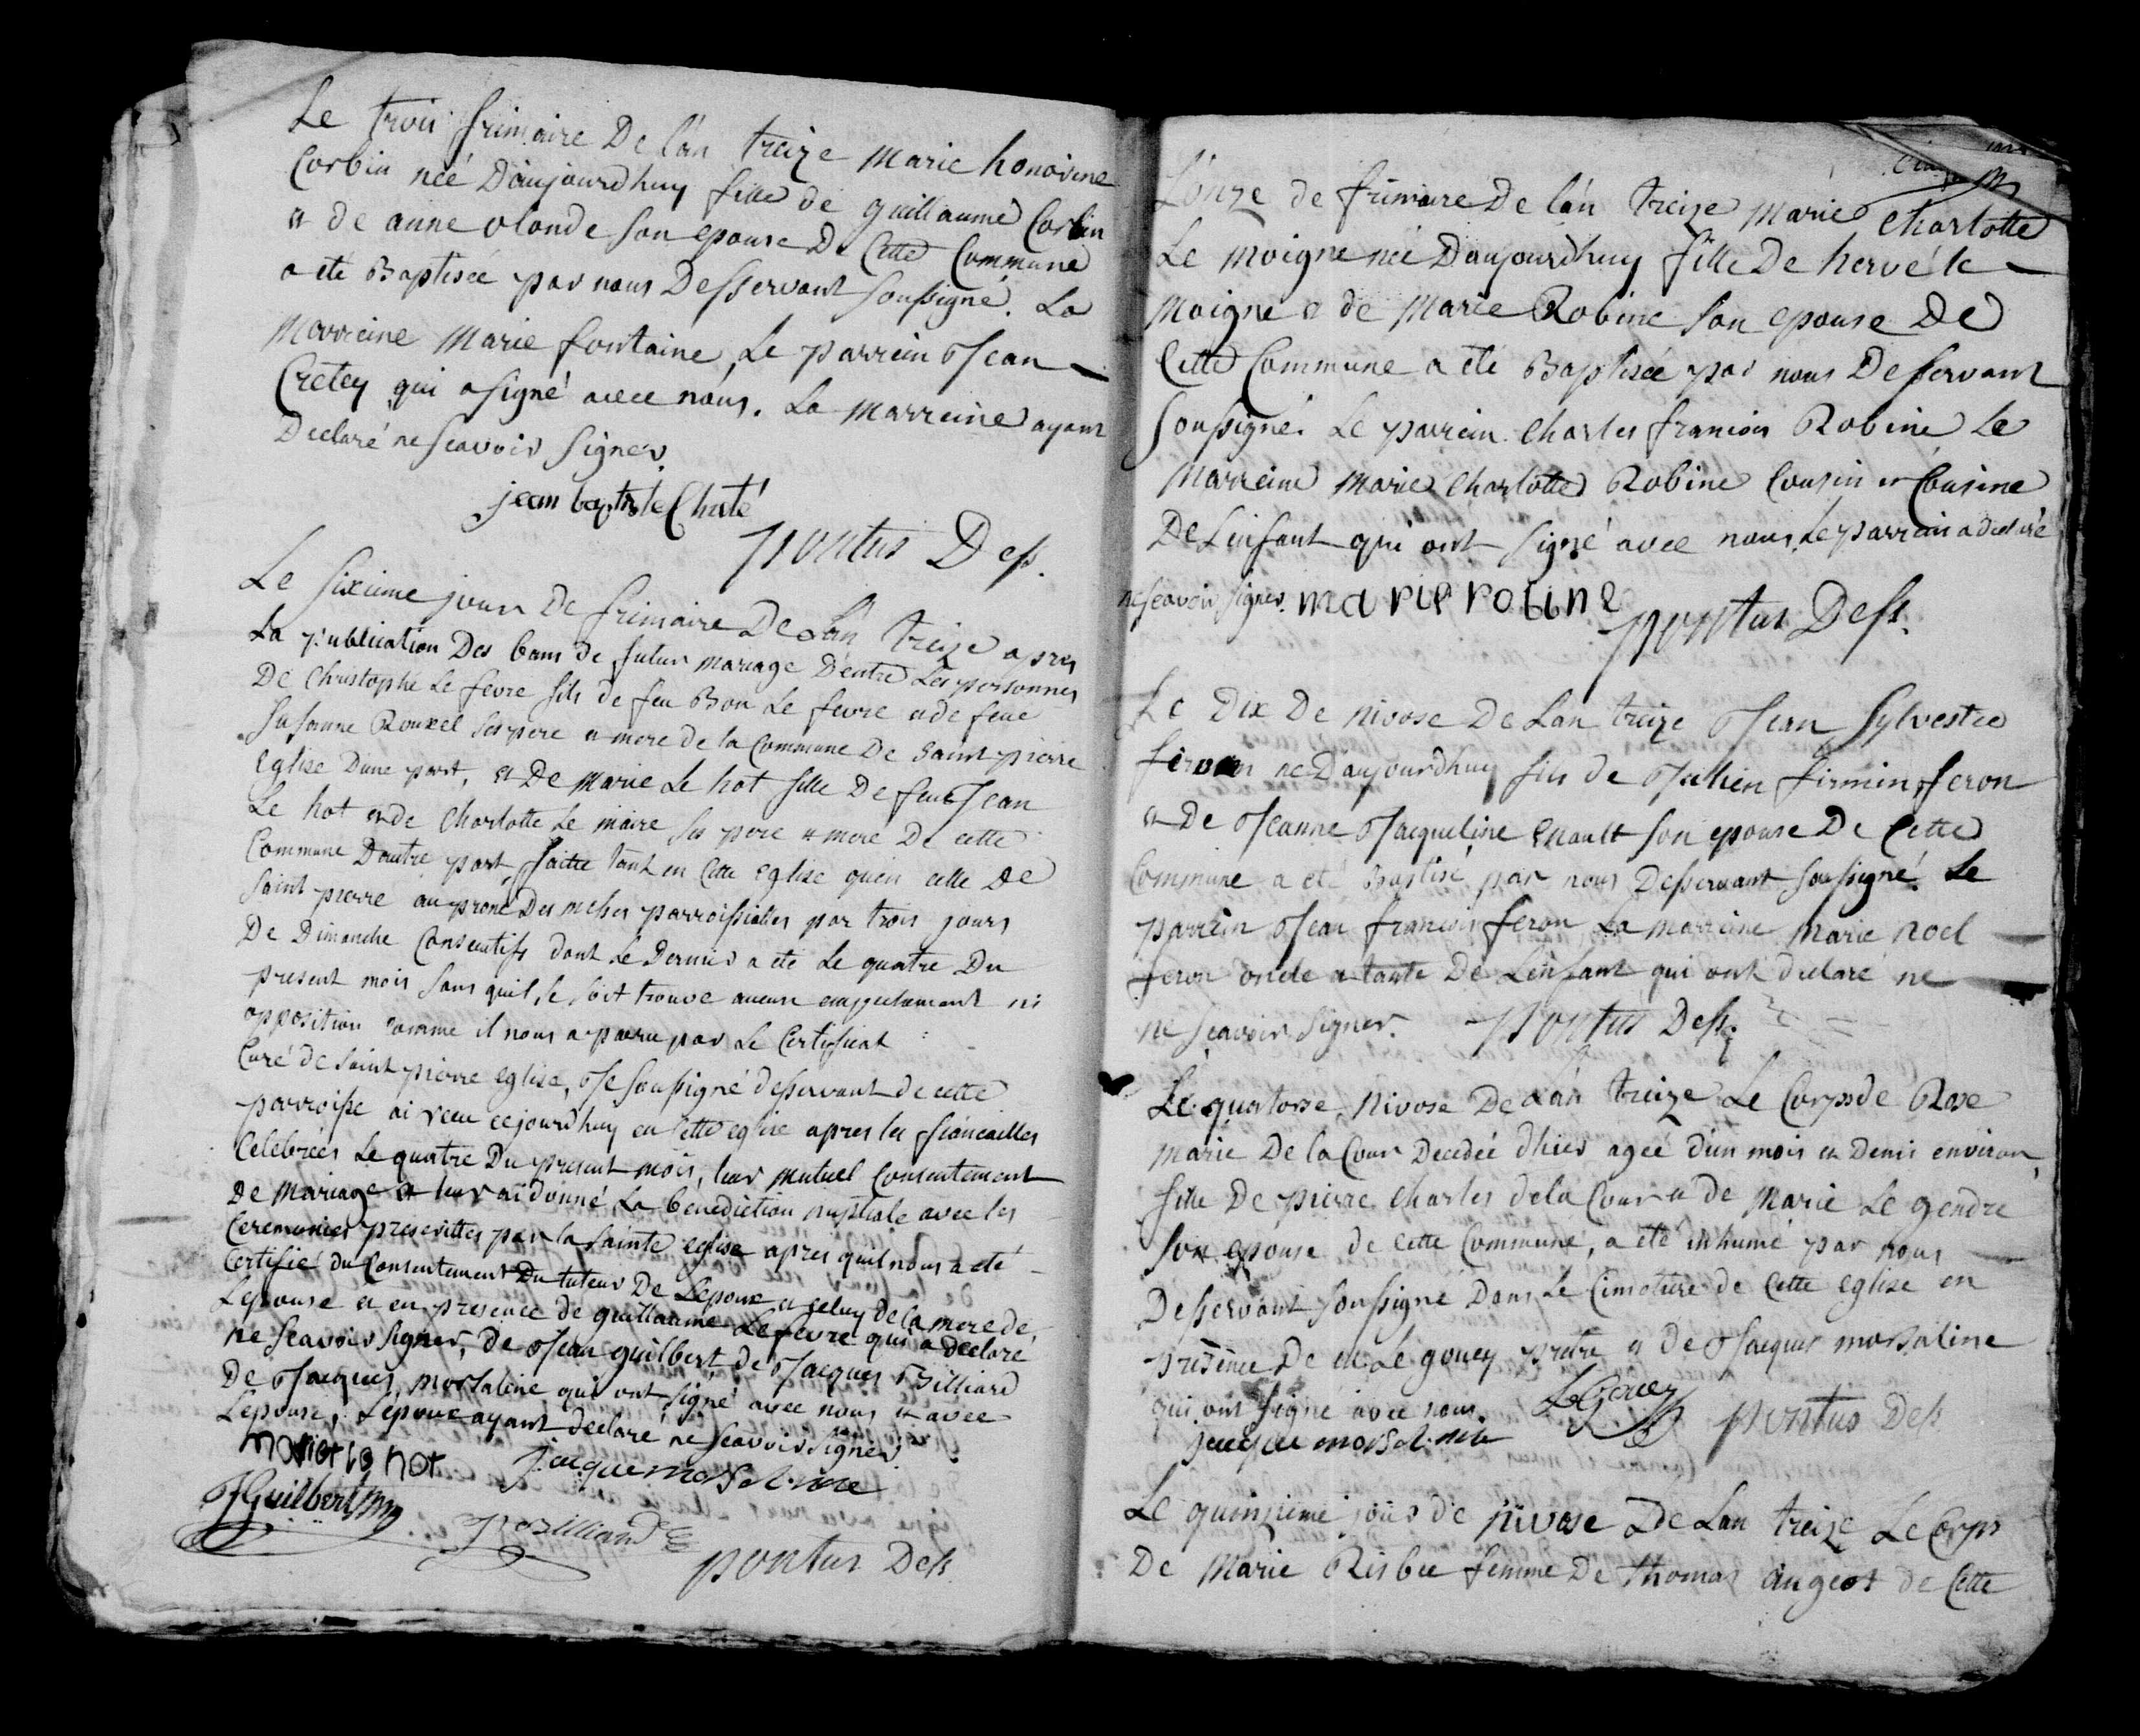 Le trois frimaire De l'an treize Marie honorine
Corbin née D'aujourdhuy fille de guillaume Corbin
et de anne olonde son epouse De Cette Commune
a eté Baptisée par nous Desservant soussigné. La
Marreine Marie fontaine, Le parrein Jean
Cretey qui a signé avec nous. La Marreine ayant
Declaré ne scavoir signer.
jean baptiste Chrté
pontus Dess.
Le sixieme jour De frimaire De L'an treize apres
La publication Des bans de futur mariage D'entre Les personnes
De Christophe Le fevre fils de feu Bon Le fevre et de feue
Susanne Rouxel ses pere et mere de la Commune De Saint pierre
Eglise D'une part, et De Marie Le hot fille De feu Jean
Le hot et de Charlotte Le maire ses pere et mere De cette
Commune D'autre part, faitte tant en Cette Eglise qu'en celle De
Saint pierre au prone Des messes parroissialles par trois jours
De Dimanche Consecutifs dont Le Dernier a eté Le quatre Du
present mois sans qu'il se soit trouvé aucun empechement ni
opposition comme il nous a paru par Le Certificat
Curé de Saint pierre eglise, Je soussigné desservant de cette
parroisse ai recu cejourdhuy en Cette eglise apres les fiancailles
Celebrées Le quatre Du present mois, leur mutuel Consentement
De Mariage et leur ai donné La benediction nuptiale avec les
Ceremonies prescrittes par la sainte eglise apres quil nous a eté
Certifié du Consentement Du tuteur De Lepoux et celuy de la mere de
Lepouse et en presence de guillaume Lefevre qui a declaré
ne scavoir signer, de Jean guilbert de Jacques Billiard
De Jacques morsaline qui ont signé avec nous et avec
Lepouse, Lepoux ayant declaré ne scavoir signer.
Marie le hot jacque morsaline
J Guilbert
J Billiard
pontus Dess
L'onze de frimaire De l'an treize Marie Charlotte
Le Moigne née D'aujourdhuy fille De hervé le
Moigne et de Marie Robine son epouse De
Cette Commune a eté Baptisée par nous Desservant
soussigné. Le parrein Charles francois Robine Le
Marreine Marie Charlotte Robine Cousin et Cousine
De Lenfant qui ont signé avec nous, Le parrein a declaré
ne scavoir signer. marie robine
pontus Dess.
Le Dix De nivose De Lan treize Jean Sylvestre
feron né D'aujourdhuy fils de Julien firmin feron
et De Jeanne Jacqueline Enault son epouse De Cette
Commune a eté Baptisé par nous Desservant soussigné. Le
parrein Jean francois feron La marreine Marie noel
feron oncle et tante De Lenfant qui ont declaré ne
ne scavoir signer. pontus Dess.
Le quatorse Nivose De L'an treize Le Corps de Rose
Marie De la Cour Decedée d'hier agée d'un mois et Demi environ,
fille De pierre Charles de la Cour et de Marie Le gendre
son epouse de Cette Commune, a eté inhumé par nous
Desservant soussigné Dans Le Cimetiere de Cette eglise en
presence De Me Le gouey pretre et de Jacques morsaline
qui ont signé avec nous. LeGouey pontus Dess
jacque morsaline
Le quinzieme jour de nivose De Lan treize Le Corps
De Marie Risbec femme De thomas augeot de Cette